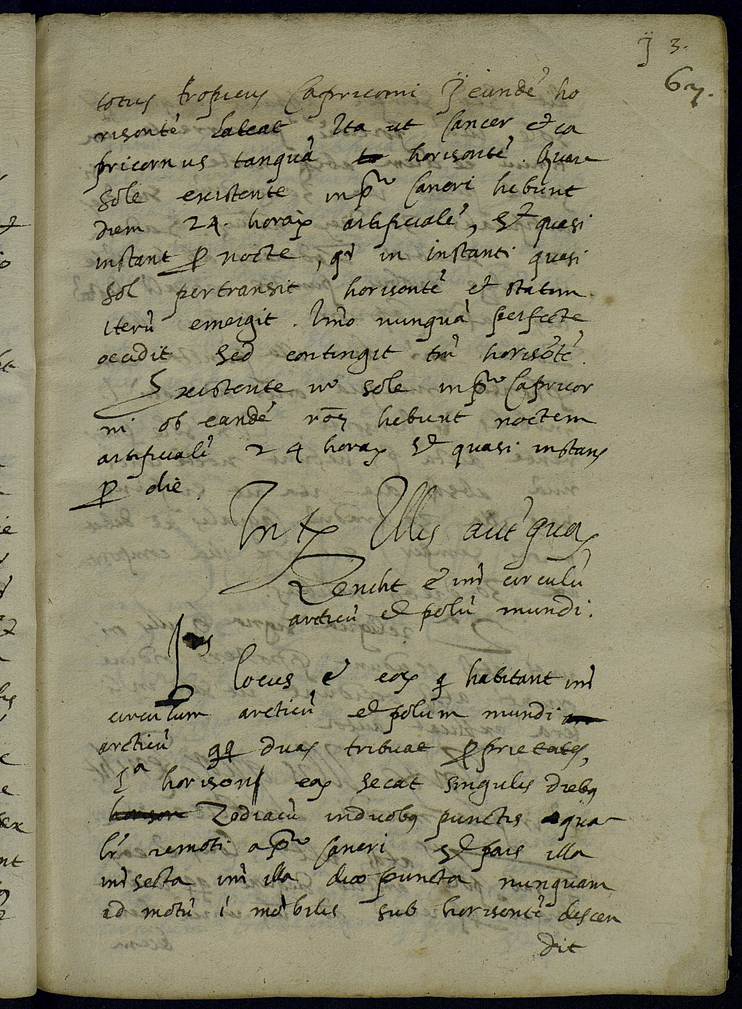 3.
67.
totus tropicus Capricorni eandẽ ho
risontẽ lateat, Ita ut Cancer et ca
pricornus tanquã horisontẽ. Quare
Sole existente in pr̃ Cancri hebunt
diem 24. horaꝝ artificialẽ, et quasi
instans ꝓ nocte, qr̃ in instanti quasi
Sol pertransit horisontẽ et statim
iterũ emergit. Imo nunquã perfecte
occidit sed contingit tm̃ horisõtẽ.
Existente vº sole in pr̃ Capricor
ni ob eandẽ rõẽ hebunt noctem
artificialẽ 24 horaꝝ et quasi instans
ꝓ die
Illis autẽ quoꝝ
Zenith ẽ int̃ circulũ
arcticũ et polũ mundi.
locus ẽ eoꝝ qⁱ habitant int̃
circulum arcticũ et polum mundi
arcticũ duas tribuat ꝓprietates,
1ª horison eoꝝ secat singulis diebꝯ
Zodiacũ in duobꝯ punctis equa
lr̃ remotis a pr̃ Cancri et pars illa
int̃secta int̃ illa duo puncta nunquam
ad motũ 1 mobilis sub horisontẽ descen
dit